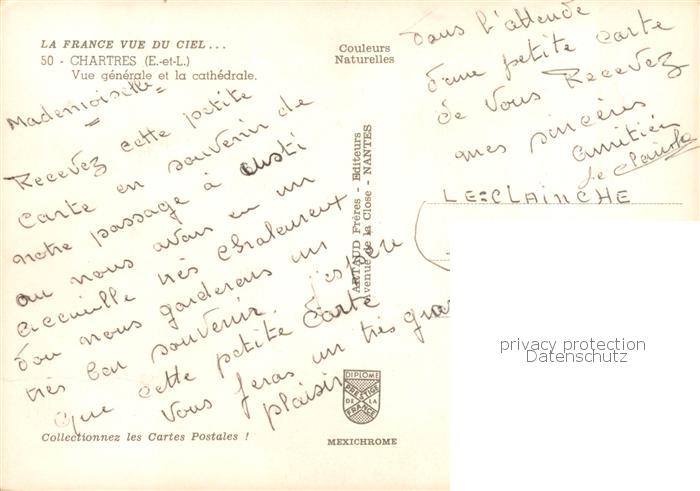 LA FRANCE VUE DU CIEL...
50 - CHARTRES (E.-et-L.)
Vue générale et la cathédrale.
Couleurs
Naturelles
Mademoiselle
Recevez cette petite
Carte en souvenir de
notre passage à
ou nous avons eu un
accueille très chaleureux
dou nous garderons un
très bon souvenir. j'espère
que cette petite Carte
Vous feras un très gran
plaisir
Dans l'attende
d'une petite carte
de Vous Recevez
mes sincères
amitiés
le Clainche
LE=CLAINCHE
ARTAUD Frères - Editeurs
Avenue de la Close - NANTES
privacy protection
Datenschutz
DIPLOME
PRESTIGE
DE LA
FRANCE
Collectionnez les Cartes Postales !
MEXICHROME